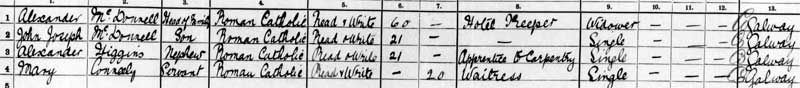 1. 2. 3. 4. 5. 6. 7. 8. 9. 10. 11. 12. 13.
1 Alexander McDonnell Head of Family Roman Catholic Read & Write 60 — Hotel Keeper Widower — — — Galway
2 John Joseph McDonnell Son Roman Catholic Read & Write 21 — Single — — — Galway
3 Alexander Higgins Nephew Roman Catholic Read & Write 21 — Apprentice to Carpentry Single — — — Galway
4 Mary Conneely Servant Roman Catholic Read & Write — 20 Waitress Single — — — Galway
5